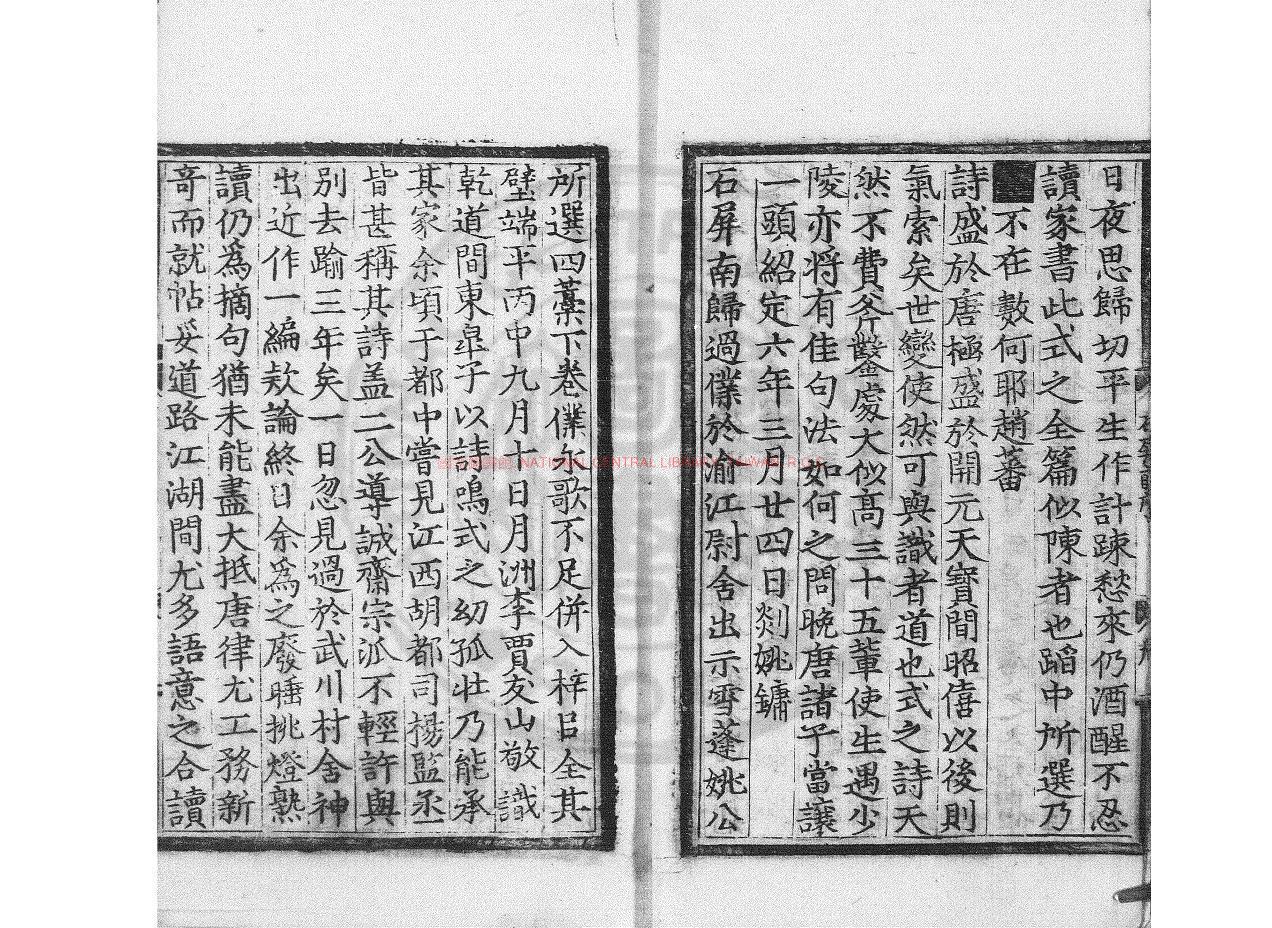 日夜思歸切平生作計踈愁來仍酒醒不忍
讀家書此式之全篇似陳者也蹈中所選乃
不在數何耶趙蕃
詩盛於唐極盛於開元天寶間昭僖以後則
氣索矣世變使然可與識者道也式之詩天
然不費斧鑿處大似高三十五輩使生遇少
陵亦將有佳句法如何之問晚唐諸子當讓
一頭紹定六年三月廿四日剡姚鏞
石屏南歸過僕於渝江尉舍出示雪蓬姚公
所選四藁下卷僕尓歌不足併入梓㠯全其
壁端平丙申九月十日月洲李賈友山敬識
乾道間東臯子以詩鳴式之幼孤壯乃能承
其家余頃于都中嘗見江西胡都司楊監丞
皆甚稱其詩盖二公導誠齋宗派不輕許與
別去踰三年矣一日忽見過於武川村舍神
出近作一編欵論終日余爲之廢睡挑燈熟
讀仍爲摘句猶未能盡大抵唐律尤工務新
竒而就帖妥道路江湖間尤多語意之合讀
國家圖書館 NATIONAL CENTRAL LIBRARY, TAIWAN, R.O.C.